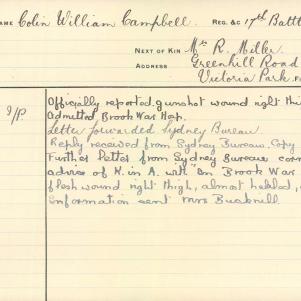 NAME Colin William Campbell. REG. &C 17th Battl
NEXT OF KIN Mrs R. Miller
ADDRESS Greenhill Road
Victoria Park.
9/P Officially reported gunshot wound right thi
Admitted Brook War Hosp.
Letter forwarded Sydney Bureau.
Reply received from Sydney Bureau. Copy
Further letter from Sydney Bureau
advice of K. in A. with Brook War
flesh wound right thigh, almost healed,
Information sent Mrs Bucknill